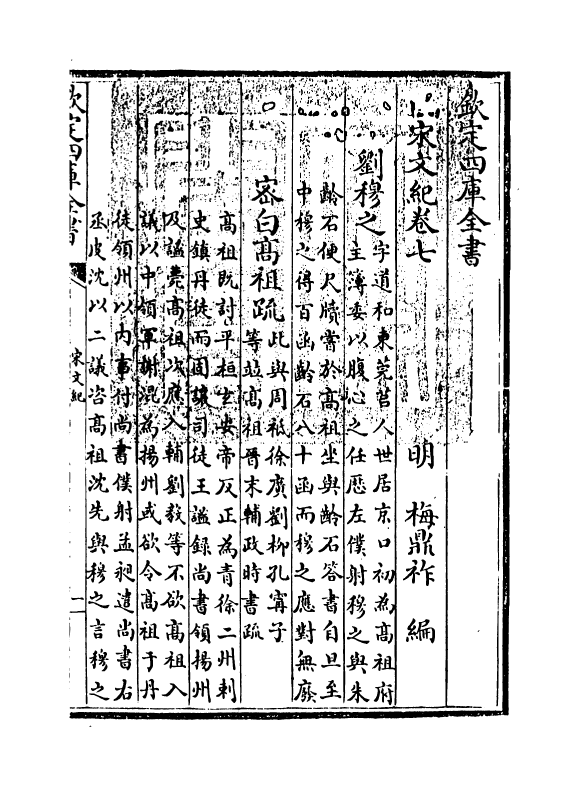 欽定四庫全書
宋文紀卷七
明 梅鼎祚 編
劉穆之
字道和東莞莒人世居京口初為髙祖府
主簿委以腹心之任歴左僕射穆之與朱
齡石便尺牘嘗於髙祖坐與齡石答書自旦至
中穆之得百函齡石八十函而穆之應對無廢
密白髙祖疏
此與周祗徐廣劉柳孔甯子
等竝髙祖晉末輔政時書疏
髙祖既討平桓玄安帝反正為青徐二州刺
史鎮丹徒而固讓司徒王謐録尚書領揚州
及謐薨髙祖次應入輔劉毅等不欲髙祖入
議以中領軍謝混為揚州或欲令髙祖于丹
徒領州以内事付尚書僕射孟昶遣尚書右
丞皮沈以二議咨髙祖沈先與穆之言穆之
欽定四庫全書
宋文紀
一